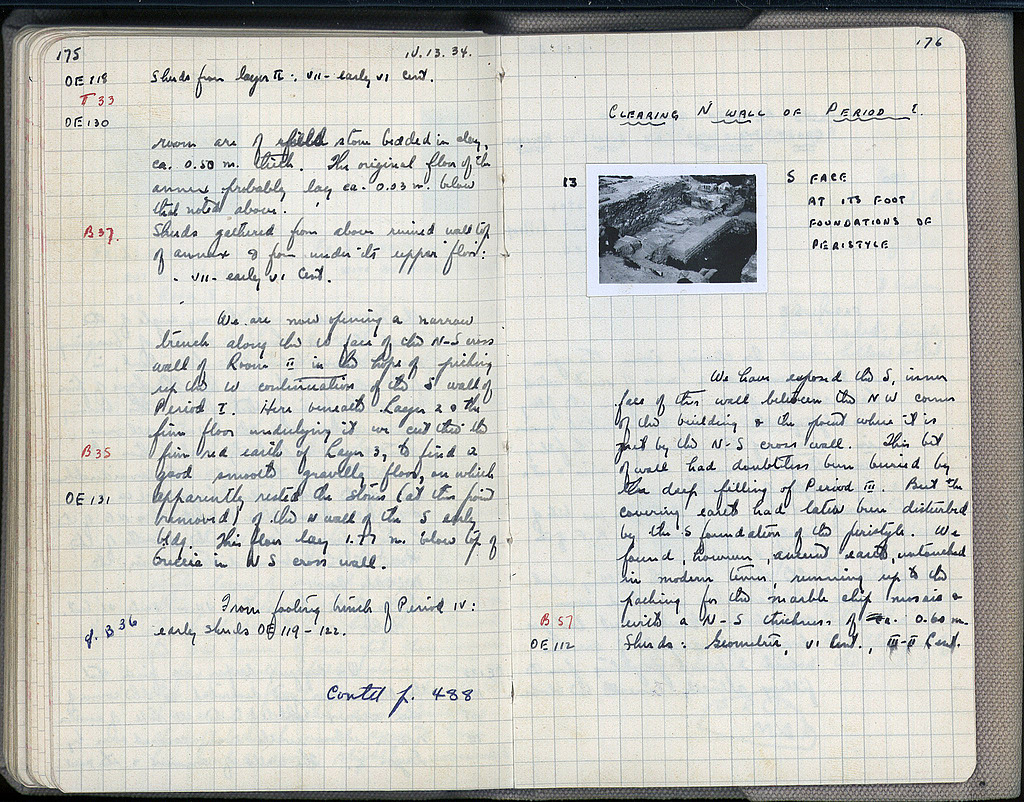 175
IV.13.34.
OE 118
Sherds from layer II: VII - early VI Cent.
T 33
OE 130
room are of field stone bedded in clay,
ca. 0.50 m. thick. The original floor of the
annex probably lay ca. 0.03 m. below
that noted above.
B 37.
Sherds gathered from above ruined wall top
of annex & from under its upper floor:
VII - early VI Cent.
We are now opening a narrow
trench along the W face of the N-S cross
wall of Room II in the hope of picking
up the W continuation of the S wall of
Period I. Here beneath Layer 2 & the
firm floor underlying it we cut thru the
B 35
firm red earth of Layer 3, to find a
good smooth gravelly floor, on which
OE 131
apparently rested the stones (at this point
removed) of the N wall of the S early
bldg. This floor lay 1.77 m. below top of
breccia in N S cross wall.
From footing trench of Period IV:
cf. B 36
early sherds OE 119-122.
Contd p. 488
176
CLEARING N WALL OF PERIOD I.
13
S FACE
AT ITS FOOT
FOUNDATIONS OF
PERISTYLE
We have exposed the S, inner
face of this wall between the NW corner
of the building & the point where it is
met by the N-S cross wall. This bit
of wall had doubtless been buried by
the deep filling of Period III. But the
covering earth had later been disturbed
by the S foundation of the peristyle. We
found, however, ancient earth, untouched
in modern times, running up to the
packing for the marble chip mosaic &
B 57
with a N-S thickness of ca. 0.60 m.
OE 112
Sherds: Geometric, VI Cent., III-II Cent.